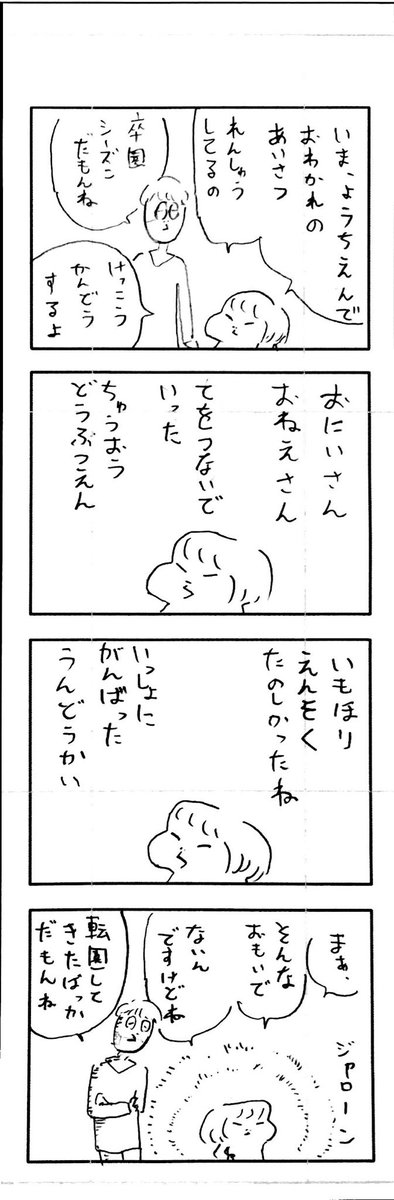 いま、ようちえんで
おわかれの
あいさつ
れんしゅう
してるの
卒園
シーズン
だもんね
けっこう
かんどう
するよ
おにいさん
おねえさん
てをつないで
いった
ちゅうおう
どうぶつえん
いもほり
えんそく
たのしかったね
いっしょに
がんばった
うんどうかい
まぁ、
そんな
おもいで
ないん
ですけどね
ジャローン
転園して
きたばっか
だもんね